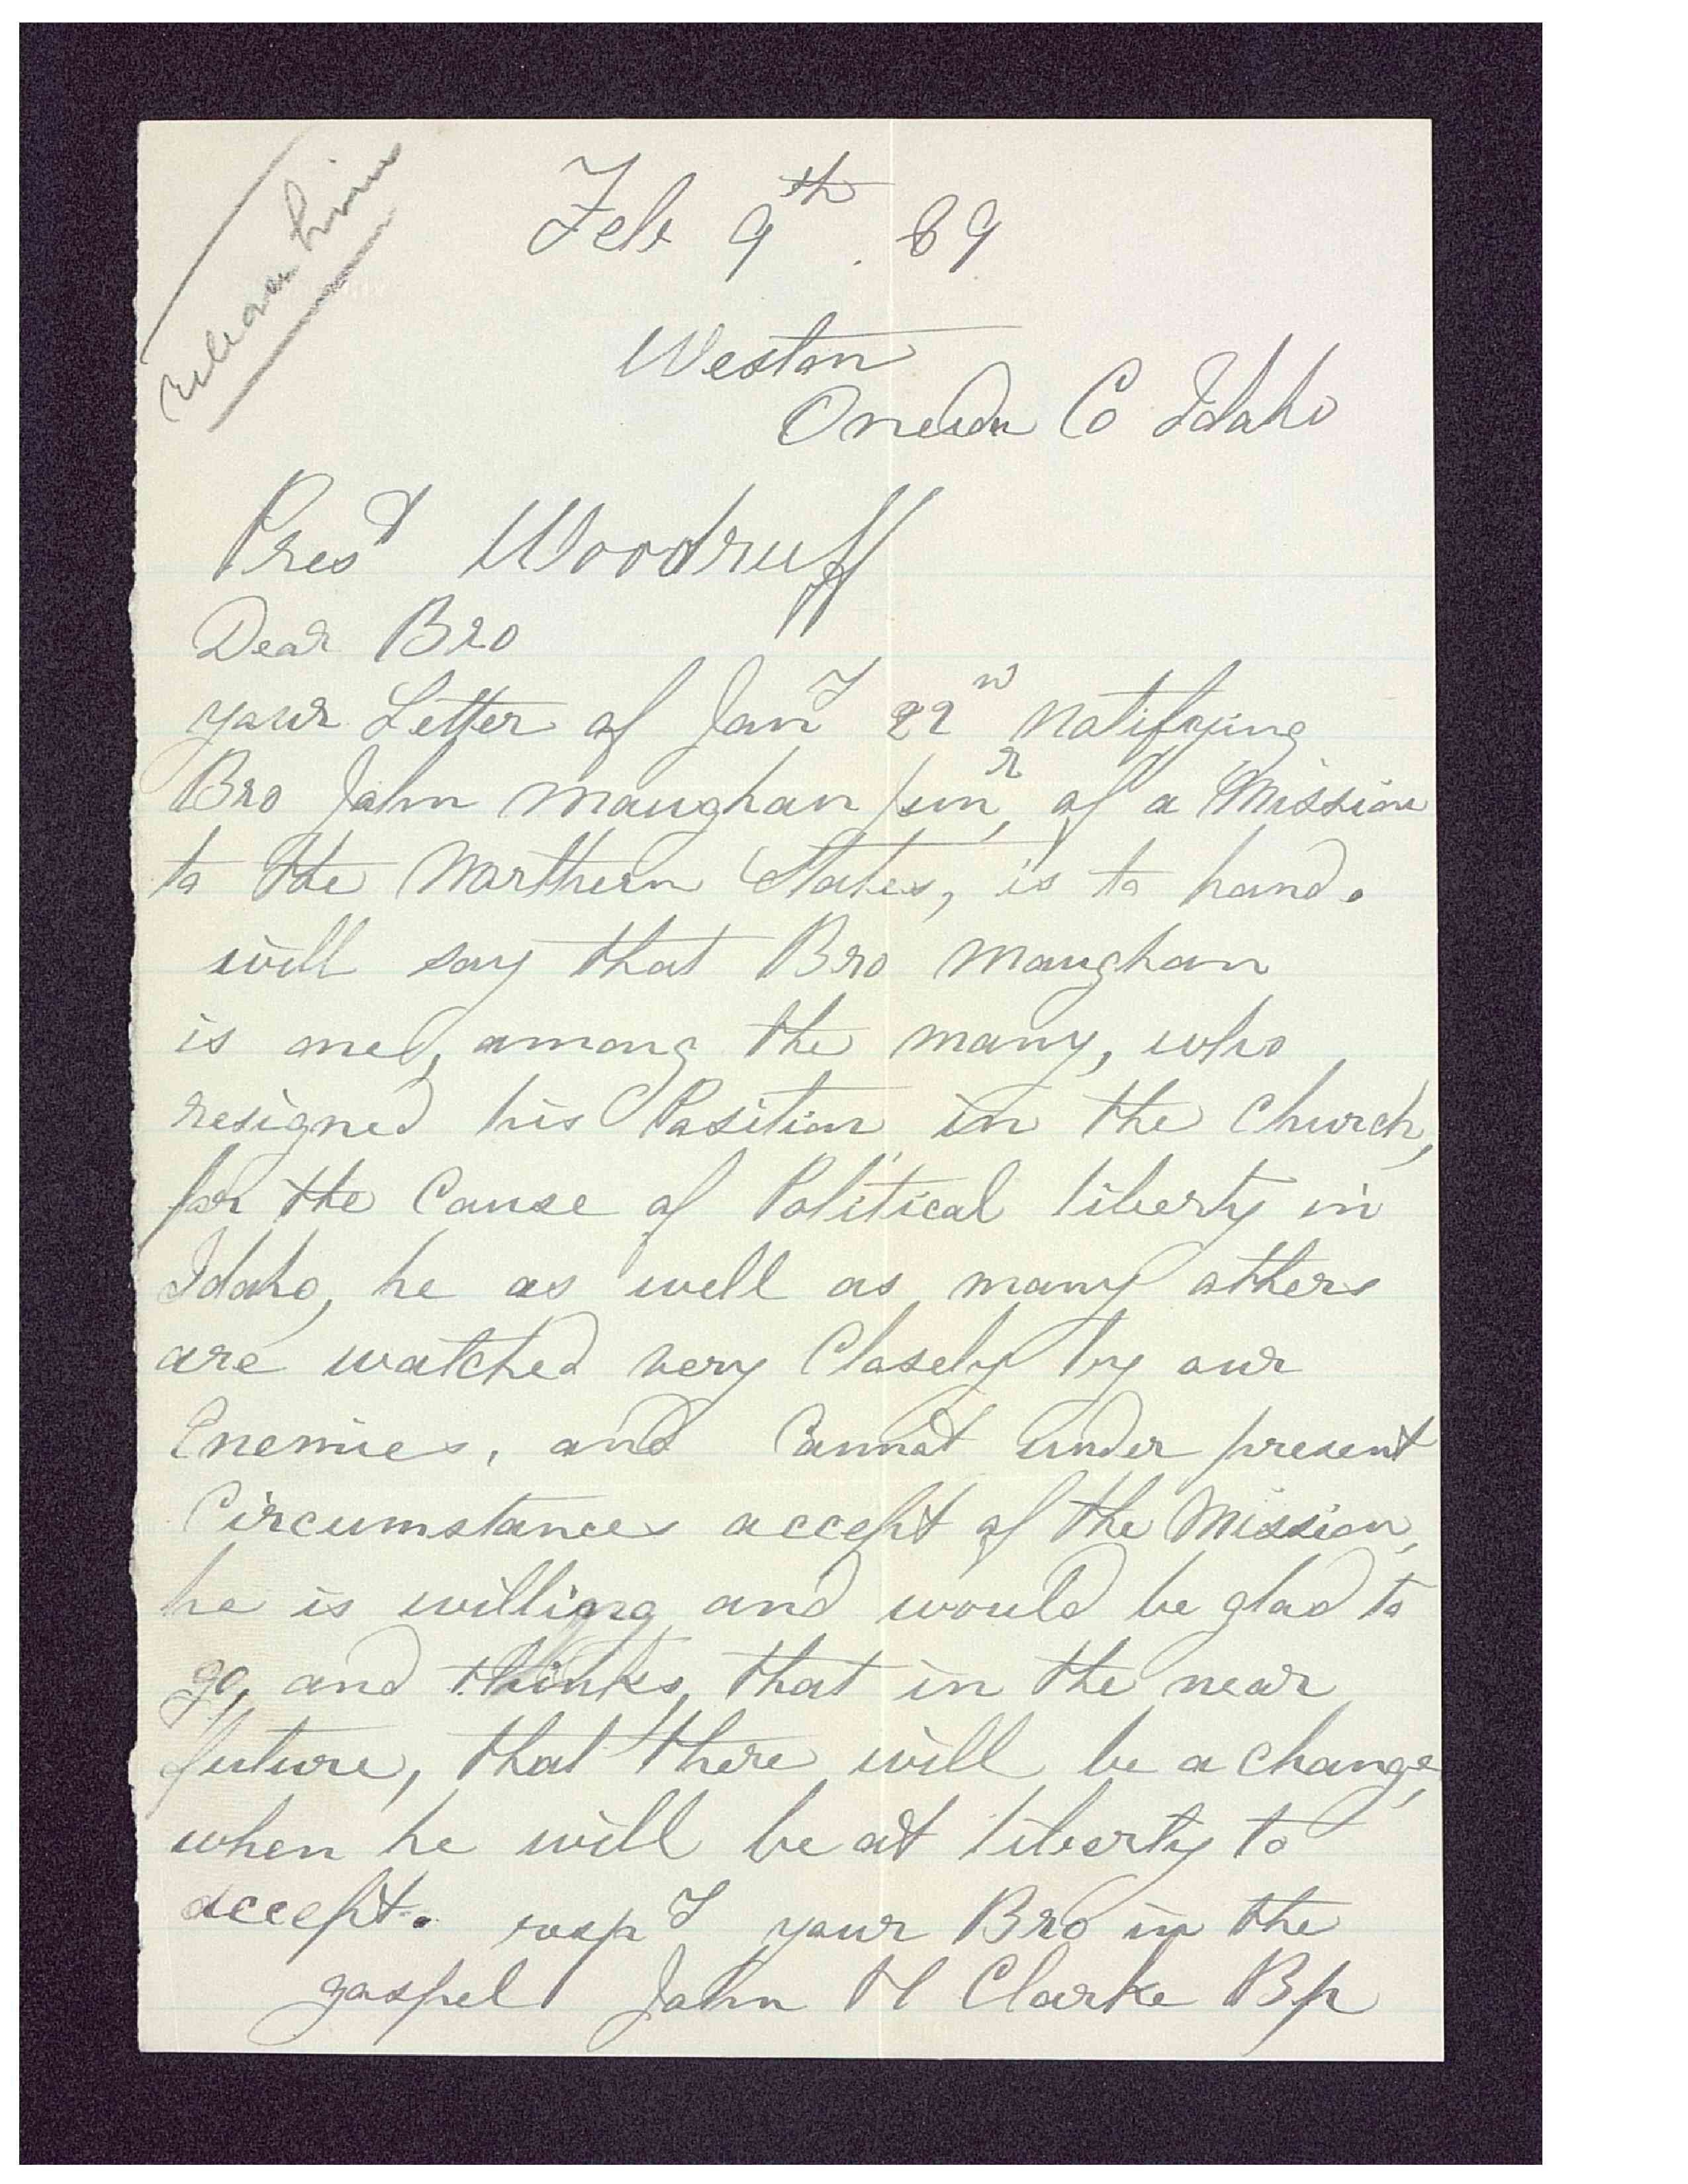 release him
Feb 9th. 89
Weston
Oneida Co Idaho
Prest Woodruff
Dear Bro
your Letter of Jany 22n notifying
Bro John Maughan junr, of a Mission
to the Northern States, is to hand.
will say that Bro Maughan
is one, among the many, who
resigned his Position in the Church,
for the Cause of Political liberty in
Idaho, he as well as many others
are watched very Closely by our
Enemies, and Cannot under present
Circumstances accept of the Mission,
he is willing and would be glad to
go, and thinks, that in the near
future, that there will be a change,
when he will be at liberty to
accept. respy your Bro in the
gospel John H Clarke Bp